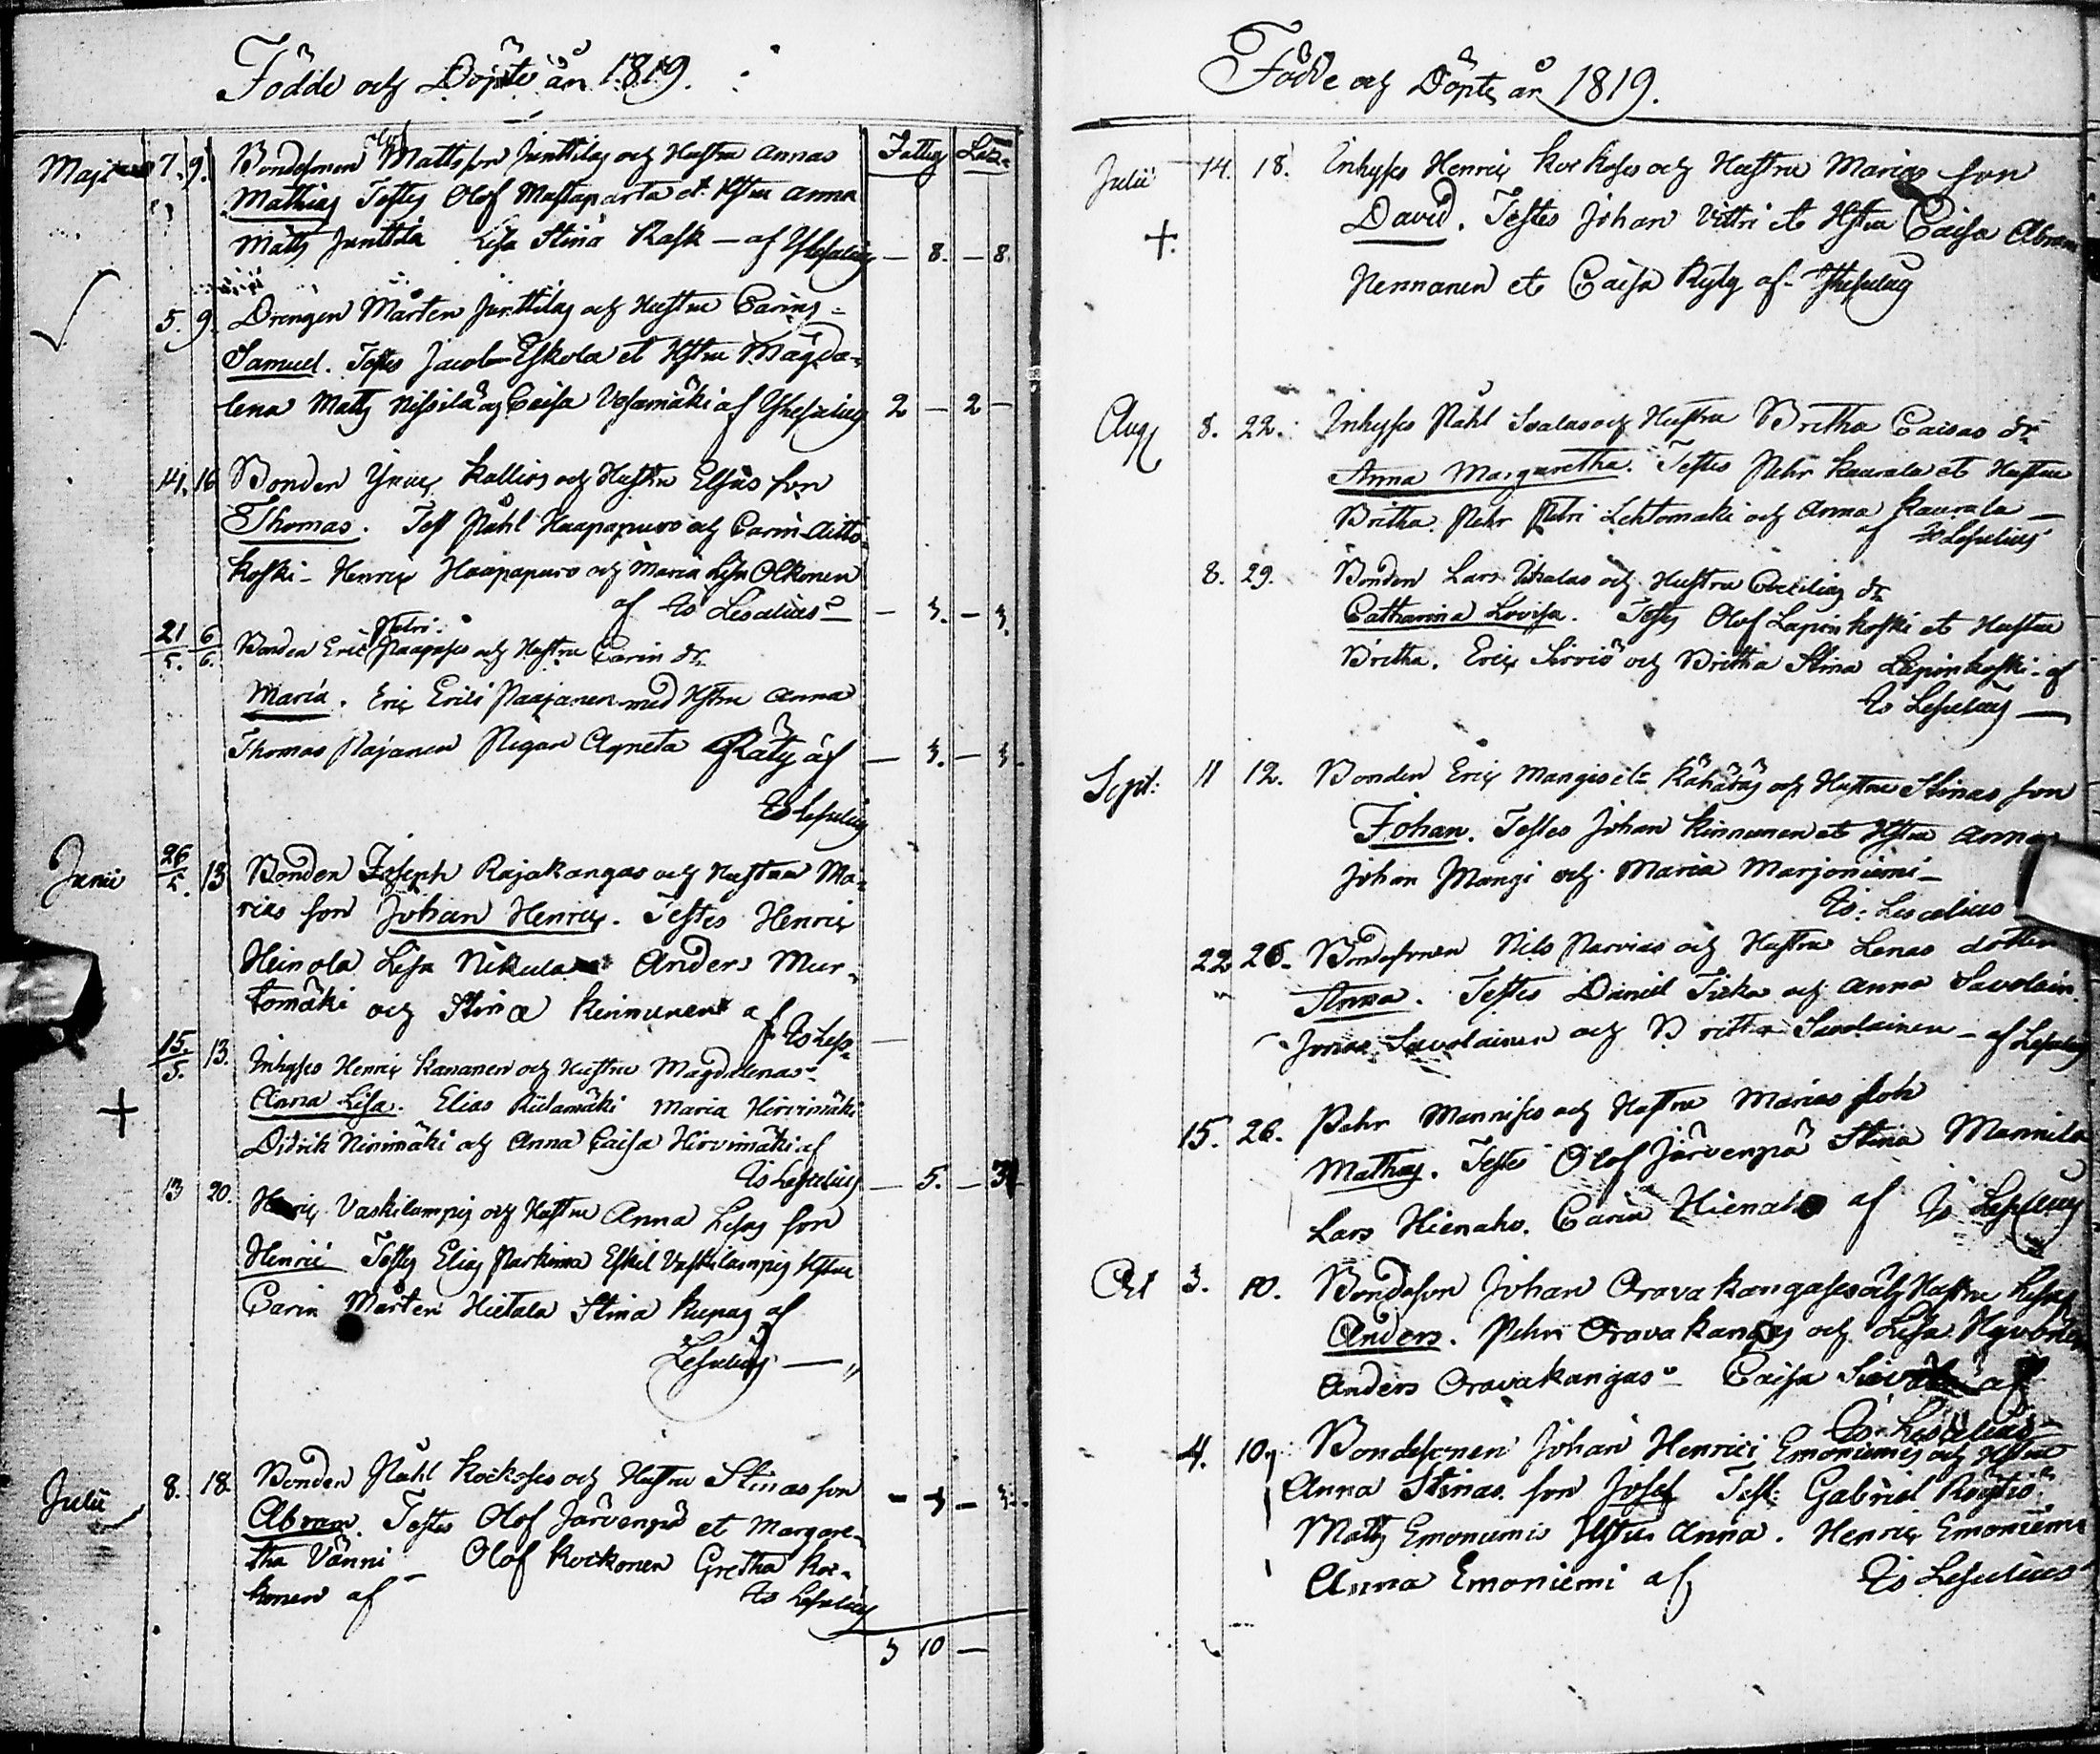 Födde och Döpte år 1819.
Fattig Lik
Maji 7. 9. Bondesonen Olof Mattsson Junttilas och Hustru Annas
Mathias Testes Olof Mustaparta et Hstru Anna
Matts Junttila Lisa Stina Rask — af — 8. — 8.
5. 9. Drengen Mårten Junttilas och Hustru Carins
Samuel. Testes Jacob Eskola et Hstru Magda-
lena Matts Nissilä och Caisa Vesamäki af 2 — 2 —
14. 16 Bonden Kallios och Hustru Elsas son
Thomas. Test Påhl Haapapuro och Carin Aitto-
koski - Henric Haapapuro och Maria Lisa Olkonen
af Es Lescelius — 3. — 3.
21/5. 6/6. Bonden Eric Petri och Hustru Carin dr.
Maria. Eric Erici Paajanen med Hstru Anna
Thomas Pajanen Pigan Agneta Räty af — 3. — 3.
Es Lescelius
Junii 26/5. 13 Bonden Joseph Rajakangas och Hustru Ma-
rias son Johan Henric. Testes Henric
Heinola Lisa Nikula Anders Mur-
tomäki och Stina Kinnunen af
Es Lesc. —
15./5. 13. Inhyses Henric Kananen och Hustru Magdalenas
Anna Lisa. Elias Riilamäki Maria Hirvimäki
Didrik Niinimäki och Anna Caisa Hirvimäki af
Es Lescelius — 5. — 3
13 20. Henric Vaskilampis och Hustru Anna Lisas son
Henric Testes Elias Parkima Eskel Vaskilampis Hstru
Carin Mårten Hietala Stina af
Lescelius —
Julii 8. 18. Bonden Påhl Kockoses och Hustru Stinas son — 3 — 3.
Abram. Testes Olof Järvenpä et Margare-
tha Vänni Olof Kockonen Gretha Koc-
konen af Es Lescelius
3 10 —
Födde och Döpte år 1819.
Julii 14. 18. Inhyses Henric Kockoses och Hustru Marias son
David. Testes Johan Vittri et Hstru Caisa Abram
Hennanen et Caisa Kylg af Lescelius
Aug 8. 22. Inhyses Påhl och Hustru Britha Caisas dr.
Anna Margaretha. Testes Pehr Kaurala et Hustru
Britha. Pehr Petri Lehtomäki och Anna Kaurala —
af Es Lescelius
8. 29. Bonden Lars och Hustru Cecilias dr.
Catharina Lovisa. Testes Olof Lapinkoski et Hustru
Britha. Eric Sirviö och Britha Stina Lapinkoski - af
Es Lescelius —
Sept: 11 12. Bonden Eric och Hustru Stinas son
Johan. Testes Johan Kinnunen et Hstru Anna
Johan Mangi och Maria Marjoniemi —
Es: Lescelius
22 26. Bondesonen Nils Parvias och Hustru Lenas dotter
Anna. Testes Daniel Ticka och Anna Savolain.
Jonas Savolainen och Britha Savolainen — af Lescelius
15. 26. Pehr och Hustru Marias son
Mathias. Testes Olof Järvenpä Stina Mannila
Lars Hienaho. Carin Hienaho af Es Lescelius
Oct 3. 10. Bondeson Johan Oravakangases och Hustru Lisas
Anders. Pehr Oravakangas och Lisa Hyvönen
Anders Oravakangas Caisa af
Es. Lescelius
4. 10. Bondesonen Johan Henrici Emoniemis och Hstru
Anna Stinas son Josef Test: Gabriel
Matts Emoniemi Hstru Anna. Henric Emoniemi
Anna Emoniemi af Es Lescelius